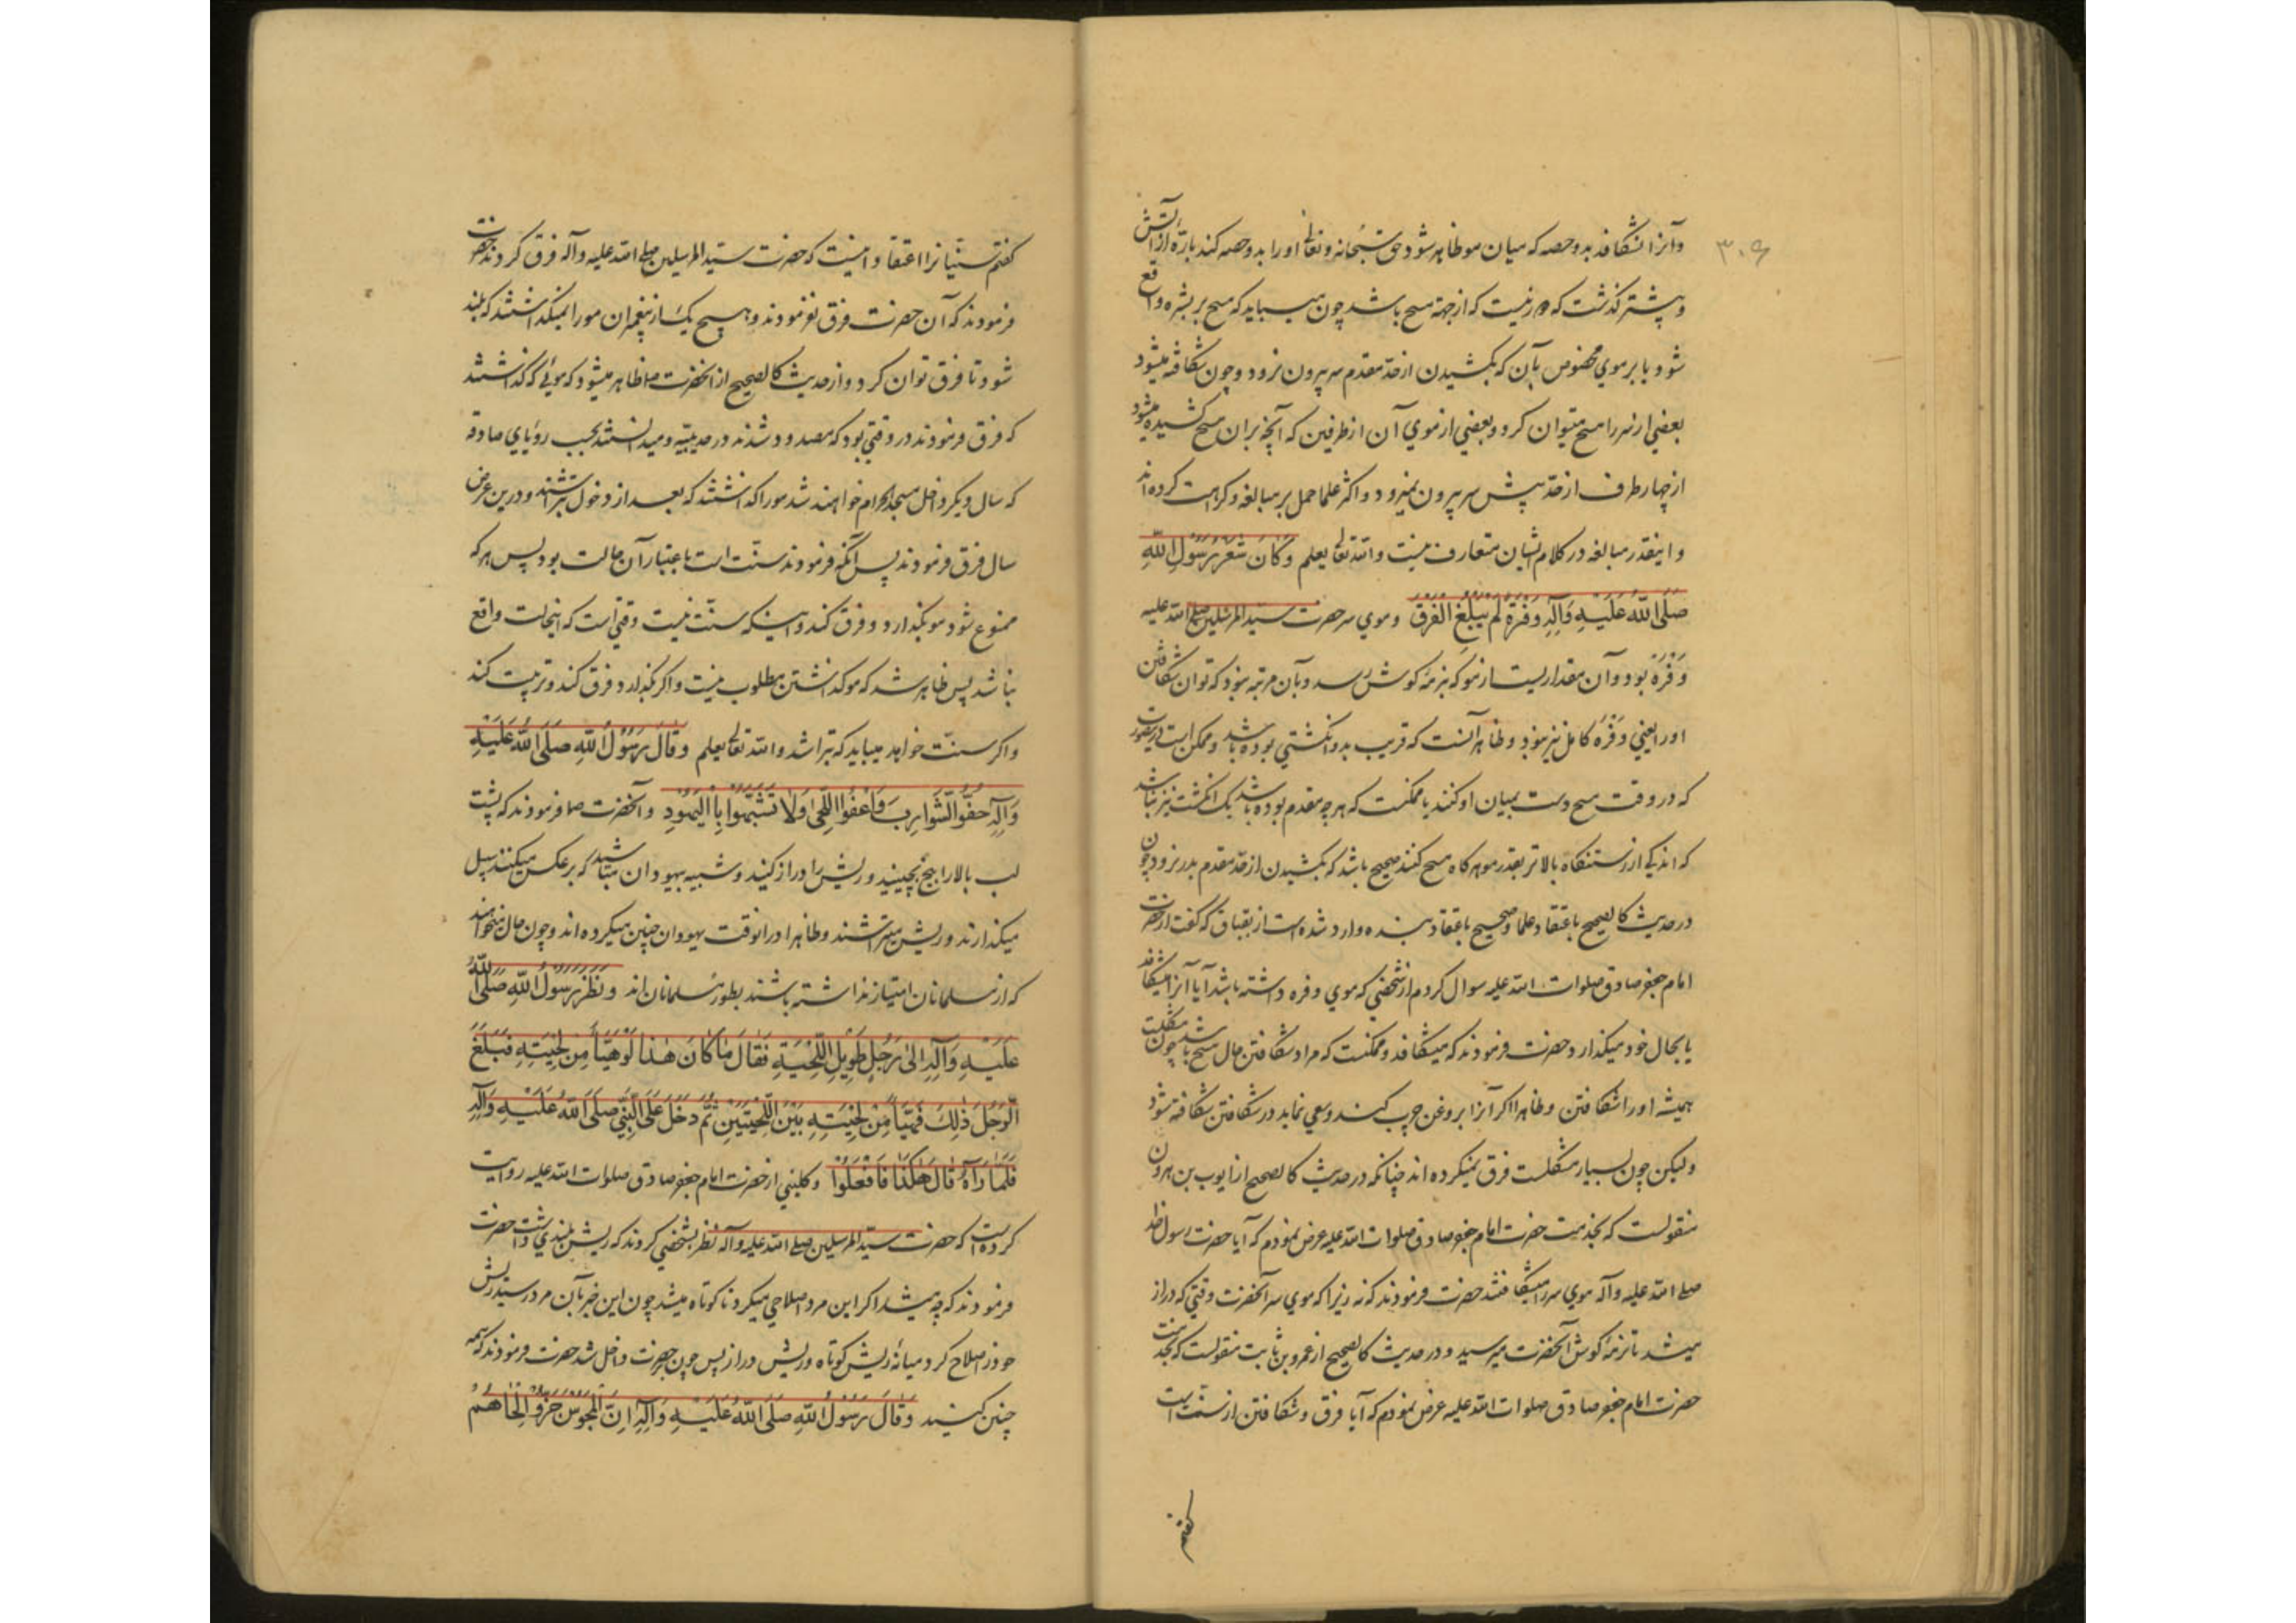 ۳۰۶
و آنرا نشکافد بدو حصه که میان مو ظاهر شود حق سبحانه و تعالی او را بدو حصه کند باره از آتش
و پیشتر گذشت که هرزنیست که از جهة مسح باشد چون میباید که مسح بر بشره واقع
شود یا بر موی مخصوص بآن که بکشیدن از حدّ مقدم سر بیرون نرود و چون شکافته میشود
بعضی از سر را مسح میتوان کرد و بعضی از موی آن از طرفین که آنچه بران مسح کشیده میشود
از چهار طرف از حدّ پیش سر بیرون نمیرود و اکثر علما حمل بر مبالغه و کراهت کرده اند
و اینقدر مبالغه در کلام ایشان متعارف نیست و الله تعالی یعلم وَكَانَ شَعْرُ رَسُولِ اللهِ
صَلَّى اللهُ عَلَيْهِ وَآلِهِ وَفْرَةً لَمْ يَبْلُغِ الْفَرْقَ و موی سر حضرت سید المرسلین صلی الله علیه
وَفْرَه بود و آن مقداریست از مو که بنرمه گوش رسد و بآن مرتبه نبود که توان شکافتن
او را یعنی وَفْرَه کامل نیز نبود و ظاهر آنست که قریب بدو انگشتی بوده باشد و ممکن است درینصورت
که در وقت مسح دست بمیان او کنند یا ممکنست که هر چه مقدم بوده باشد یک انگشت نیز نباشد
که اندکی از رستنگاه بالاتر بقدر مو هرگاه مسح کنند صحیح باشد که بکشیدن از حدّ مقدم بدر نرود چون
در حدیث کالصحیح باعتقاد علما و صحیح باعتقاد بنده وارد شده است از بقباق که گفت از حضرت
امام جعفر صادق صلوات الله علیه سوال کردم از شخصی که موی وفره داشته باشد آیا آنرا میشکافد
یا بحال خود میگذارد حضرت فرمودند که میشکافد و ممکنست که مراد شکافتن حال مسح باشد چون مشکلست
همیشه او را شکافتن و ظاهرا اگر آنرا بروغن چرب کنند و سعی نماید در شکافتن شکافته شود
ولیکن چون بسیار مشکلست فرق نمیکرده اند چنانکه در حدیث کالصحیح از ایوب بن هرون
منقولست که بخدمت حضرت امام جعفر صادق صلوات الله علیه عرض نمودم که آیا حضرت رسول خدا
صلی الله علیه و آله موی سر را میشکافتند حضرت فرمودند که نه زیرا که موی سر آنحضرت وقتی که دراز
میشد تا نرمه گوش آنحضرت میرسید و در حدیث کالصحیح از عمرو بن ثابت منقولست که بخدمت
حضرت امام جعفر صادق صلوات الله علیه عرض نمودم که آیا فرق و شکافتن از سنت است
گفتم
گفتم سنّیانرا اعتقاد اینست که حضرت سید المرسلین صلی الله علیه و آله فرق کردند حضرت
فرمودند که آن حضرت فرق نفرمودند و هیچ یک از پیغمبران مو را نمیگذاشتند که بلند
شود تا فرق توان کرد و از حدیث کالصحیح از آنحضرت ص ظاهر میشود که موئی که گذاشتند
که فرق فرمودند در وقتی بود که مصدود شدند در حدیبیّه و میدانستند بحسب رؤیای صادقه
که سال دیگر داخل مسجد الحرام خواهند شد مو را گذاشتند که بعد از دخول بتراشند و درین عرض
سال فرق فرمودند پس آنکه فرمودند سنّت است باعتبار آن حالت بود پس هر که
ممنوع شود مو بگذارد و فرق کند و اینکه سنّت نیست وقتی است که اینحالت واقع
نباشد پس ظاهر شد که مو گذاشتن مطلوب نیست و اگر بگذارد فرق کند و تربیت کند
و اگر سنّت خواهد میباید که بتراشد و الله تعالی یعلم وَقَالَ رَسُولُ اللهِ صَلَّى اللهُ عَلَيْهِ
وَآلِهِ حُفُّوا الشَّوَارِبَ وَاعْفُوا اللِّحَى وَلَا تَشَبَّهُوا بِالْيَهُودِ و آنحضرت ص فرمودند که پشت
لب بالا را بیخ بچینید و ریش را دراز کنید و شبیه بیهودان مباشید که بر عکس میکنند سبیل
میگذارند و ریش میتراشند و ظاهرا در انوقت یهودان چنین میکرده اند و چون حال میخواهند
که از مسلمانان امتیاز نداشته باشند بطور مسلمانان اند وَنَظَرَ رَسُولُ اللهِ صَلَّى اللهُ
عَلَيْهِ وَآلِهِ اِلَى رَجُلٍ طَوِيلِ اللِّحْيَةِ فَقَالَ مَا كَانَ هٰذَا لَوْ هَيَّأَ مِنْ لِحْيَتِهِ فَبَلَغَ
الرَّجُلَ ذٰلِكَ فَهَيَّأَ مِنْ لِحْيَتِهِ بَيْنَ اللِّحْيَتَيْنِ ثُمَّ دَخَلَ عَلَى النَّبِيِّ صَلَّى اللهُ عَلَيْهِ وَآلِهِ
فَلَمَّا رَآهُ قَالَ هٰكَذَا فَافْعَلُوا و کلینی از حضرت امام جعفر صادق صلوات الله علیه روایت
کرده است که حضرت سید المرسلین صلی الله علیه و آله نظر بشخصی کردند که ریش بلندی داشت حضرت
فرمودند که چه میشد اگر این مرد اصلاحی میکرد تا کوتاه میشد چون این خبر بآن مرد رسید ریش
خود را اصلاح کرد میانه ریش کوتاه و ریش دراز پس چون بحضرت داخل شد حضرت فرمودند که همه
چنین کنید وَقَالَ رَسُولُ اللهِ صَلَّى اللهُ عَلَيْهِ وَآلِهِ اِنَّ الْمَجُوسَ جَزُّوا لِحَاهُمْ